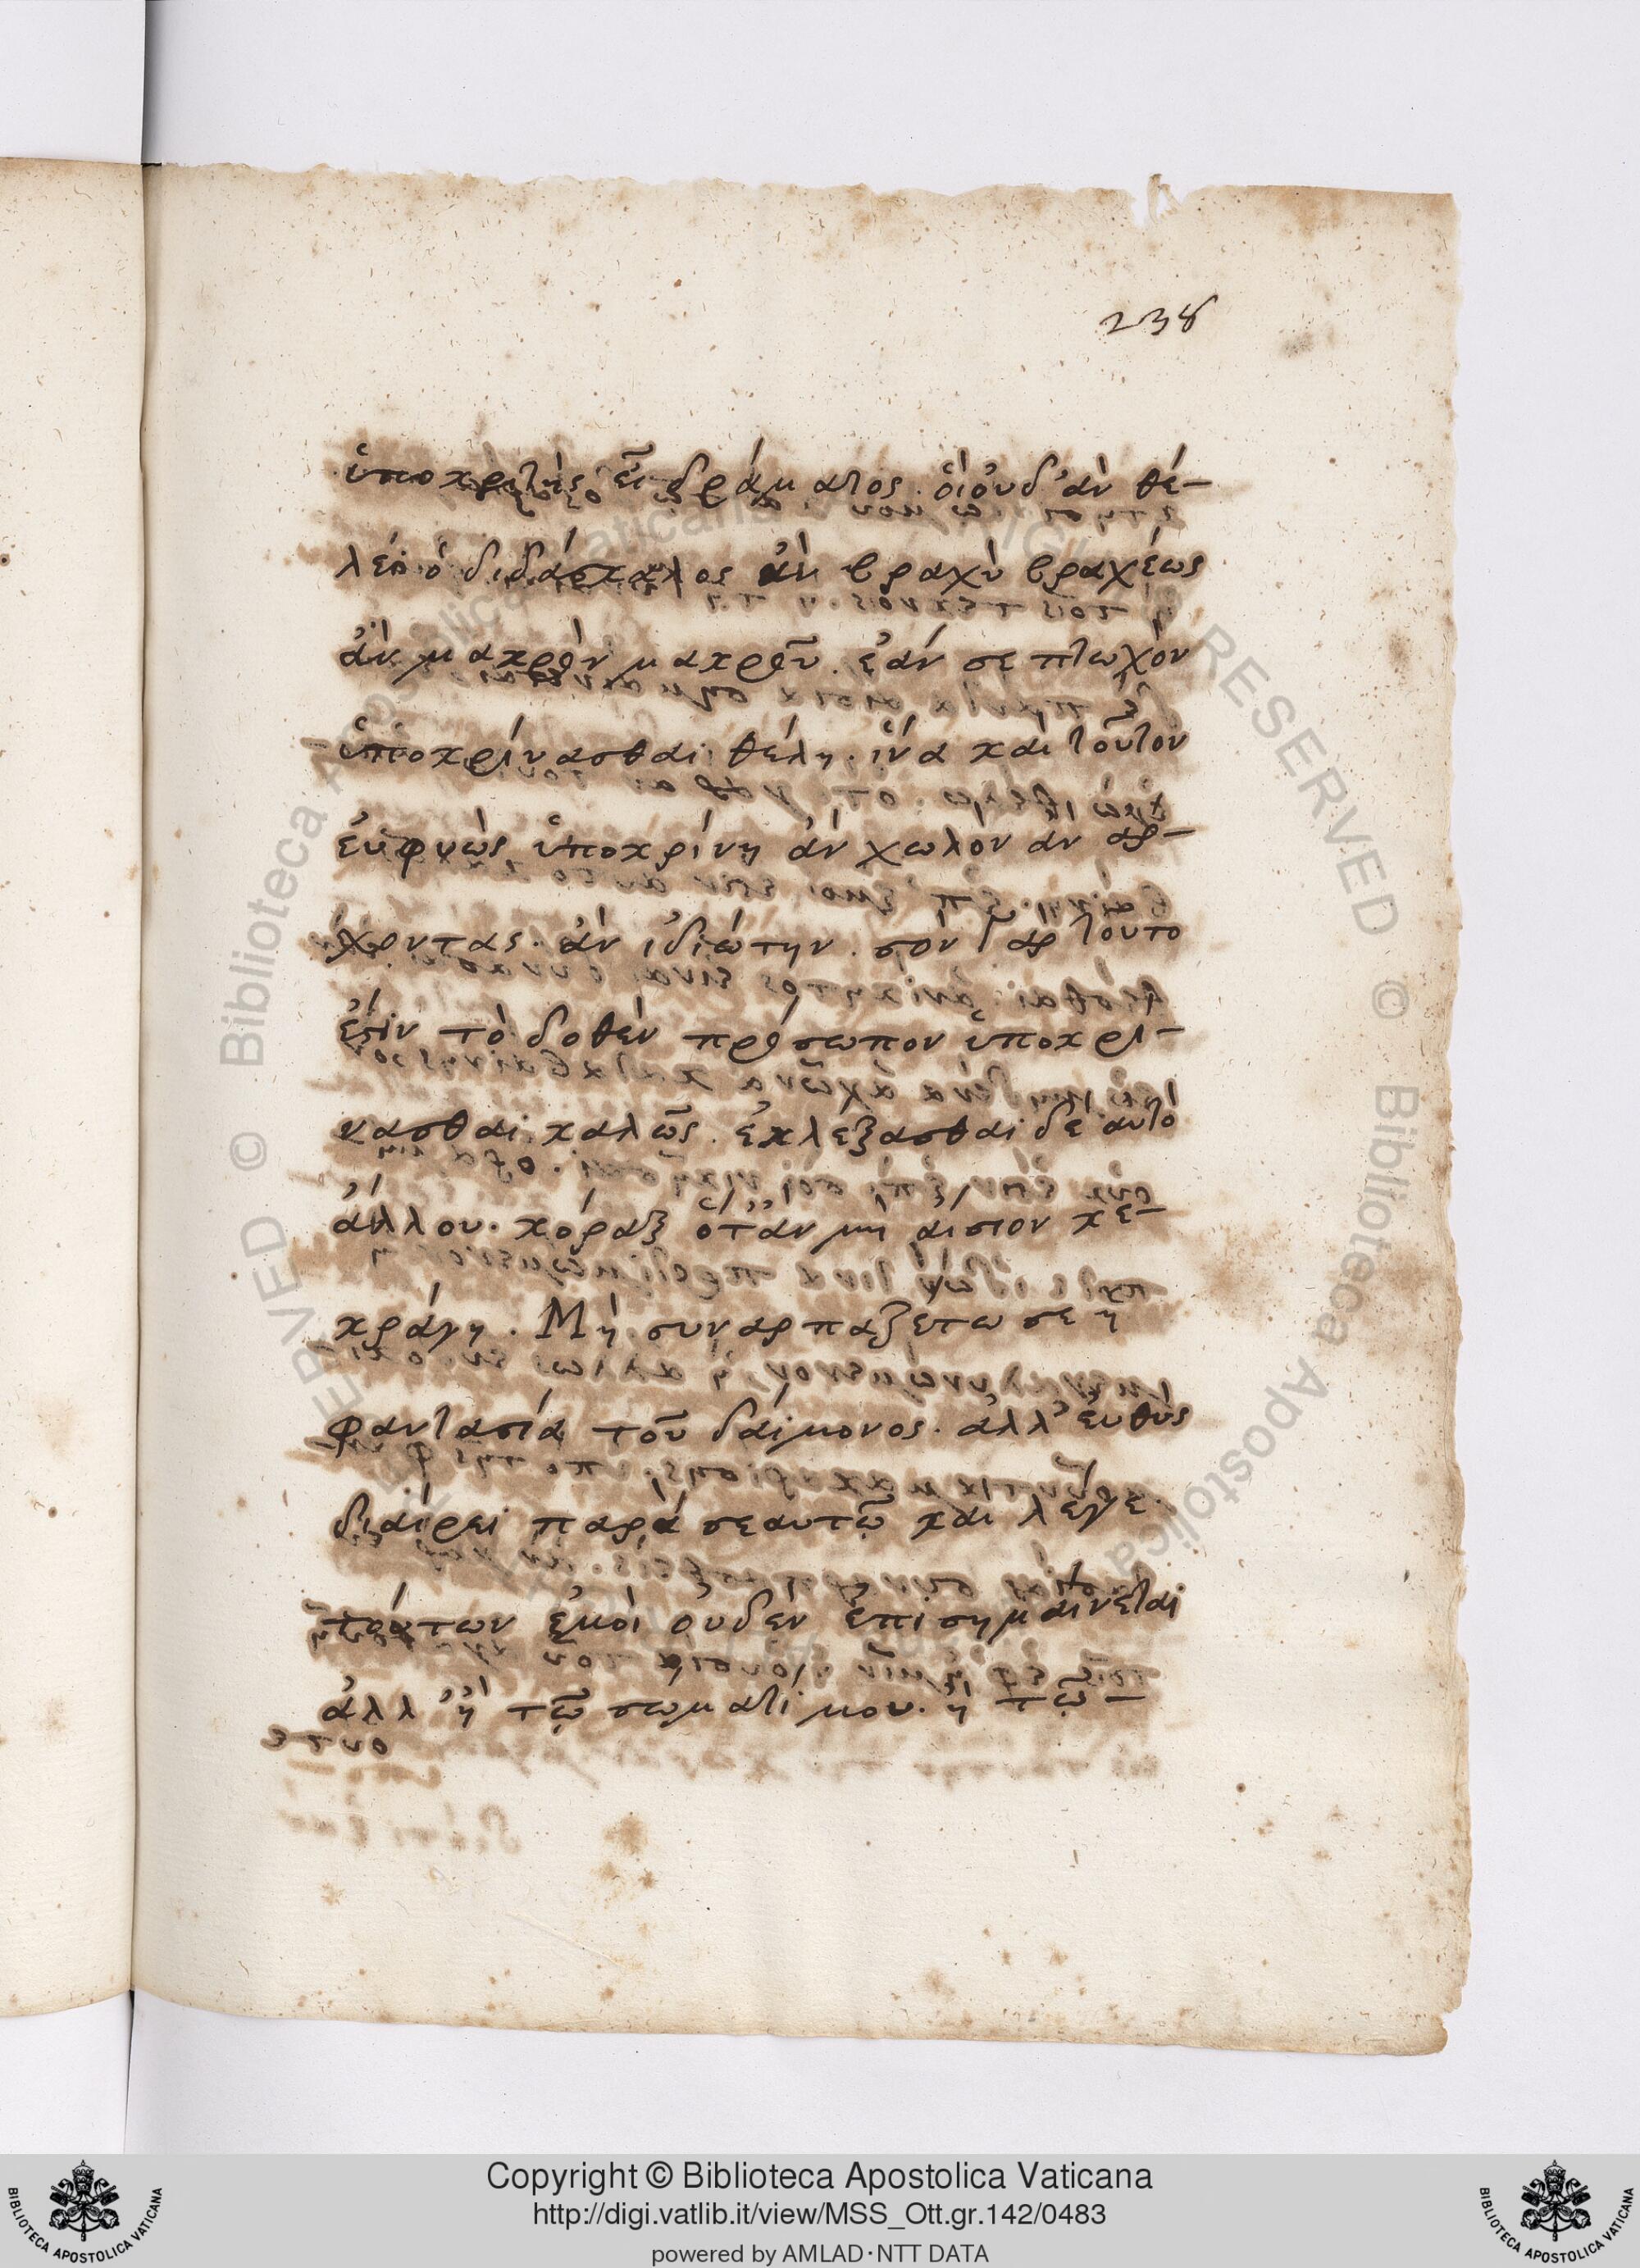 238
ὑποκριτὴς εἶ δράματος. οἱουδ' ἂν θέ-
λει ὁ διδάσκαλος ἂν βραχὺ βραχέως
ἂν μακρὸν μακροῦ. ἐάν σε πτωχὸν
ὑποκρίνασθαι θέλη. ἵνα καὶ τοῦτον
εὐφυῶς ὑποκρίνη ἂν χωλὸν ἂν ἄρ-
χοντας. ἂν ἰδιώτην. σὸν γὰρ τοῦτο
ἐστὶν τὸ δοθὲν πρόσωπον ὑποκρί-
νασθαι καλῶς. ἐκλέξασθαι δὲ αὐτὸ
ἄλλου. κόραξ ὅτἂν μὴ αἴσιον κε-
κράγη. Μὴ συναρπαζέτω σε ἡ
φαντασία τοῦ δαίμονος. ἀλλ' εὐθὺς
διαίρει παρὰ σεαυτῷ καὶ λέγε.
τούτων ἐμοὶ οὐδὲν ἐπισημαίνεται
ἀλλ' ἢ τῷ σωματί μου. ἢ τῷ-
Copyright © Biblioteca Apostolica Vaticana
http://digi.vatlib.it/view/MSS_Ott.gr.142/0483
powered by AMLAD·NTT DATA
BIBLIOTECA APOSTOLICA VATICANA
BIBLIOTECA APOSTOLICA VATICANA